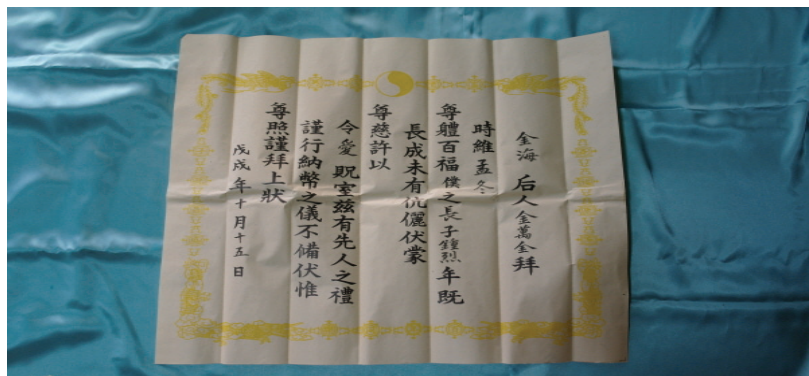 金海 后人金萬金拜
時維 孟冬
尊體百福僕之長子鐘烈年既
長成未有伉儷伏蒙
尊慈許以
令愛 貺室玆有先人之禮
謹行納幣之儀不備伏惟
尊照謹拜上狀
戊戌年十月十五日